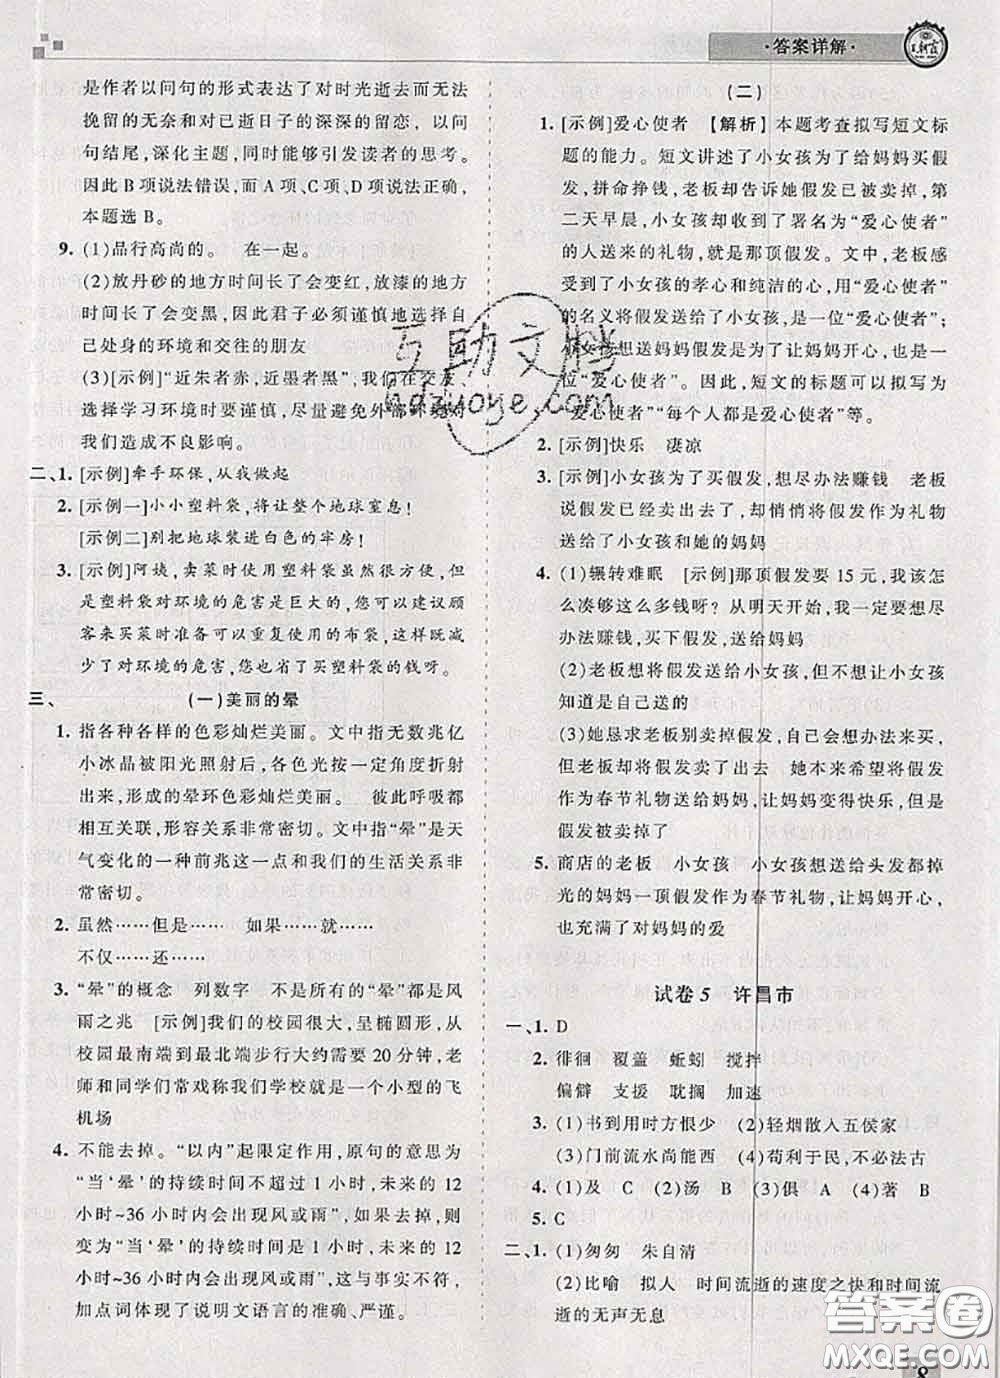 ·答案详解·
是作者以问句的形式表达了对时光逝去而无法
挽留的无奈和对已逝日子的深深的留恋，以问
句结尾，深化主题，同时能够引发读者的思考。
因此 B 项说法错误，而 A 项、C 项、D 项说法正确。
本题选 B。
9. (1)品行高尚的。 在一起。
(2)放丹砂的地方时间长了会变红，放漆的地方
时间长了会变黑，因此君子必须谨慎地选择自
己处身的环境和交往的朋友
(3)[示例]“近朱者赤，近墨者黑”，我们在交友、
选择学习环境时要谨慎，尽量避免外部环境对
我们造成不良影响。
二、1. [示例]牵手环保，从我做起
2. [示例一]小小塑料袋，将让整个地球窒息！
[示例二]别把地球装进白色的牢房！
3. [示例]阿姨，卖菜时使用塑料袋虽然很方便，
但是塑料袋对环境的危害是巨大的，您可以建议顾
客来买菜时准备可以重复使用的布袋，这样既减
少了对环境的危害，您也省了买塑料袋的钱呀。
三、 (一)美丽的晕
1. 指各种各样的色彩灿烂美丽。文中指无数兆亿
小冰晶被阳光照射后，各色光按一定角度折射
出来，形成的晕环色彩灿烂美丽。 彼此呼吸都
相互关联，形容关系非常密切。文中指“晕”是天
气变化的一种前兆这一点和我们的生活关系非
常密切。
2. 虽然……但是…… 如果……就……
不仅……还……
3. “晕”的概念 列数字 不是所有的“晕”都是风
雨之兆 [示例]我们的校园很大，呈椭圆形，从
校园最南端到最北端步行大约需要 20 分钟，老
师和同学们常戏称我们学校就是一个小型的飞
机场
4. 不能去掉。“以内”起限定作用，原句的意思为
“当‘晕’的持续时间不超过 12 小时，未来的 12
小时~36 小时内会出现风或雨”，如果去掉，则
变为“当‘晕’的持续时间为 12 小时，未来的 12
小时~36 小时内会出现风或雨”，这与事实不符，
加点词体现了说明文语言的准确、严谨。
(二)
1. [示例]爱心使者 【解析】本题考查拟写短文标
题的能力。短文讲述了小女孩为了给妈妈买假
发，拼命挣钱，老板却告诉她假发已被卖掉，第
二天早晨，小女孩却收到了署名为“爱心使者”
的人送来的礼物，正是那顶假发。文中，老板感
受到了小女孩的孝心和纯洁的心，以“爱心使者”
的名义将假发送给了小女孩，是一位“爱心使者”；
小女孩想送妈妈假发是为了让妈妈开心，也是一
位“爱心使者”。因此，短文的标题可以拟写为
“爱心使者”“每个人都是爱心使者”等。
2. [示例]快乐 凄凉
3. [示例]小女孩为了买假发，想尽办法赚钱 老板
说假发已经卖出去了，却悄悄将假发作为礼物
送给了小女孩和她的妈妈
4. (1)辗转难眠 [示例]那顶假发要 15 元，我该怎
么凑够这么多钱呀？从明天开始，我一定要想尽
办法赚钱，买下假发，送给妈妈
(2)老板想将假发送给小女孩，但不想让小女孩
知道是自己送的
(3)她恳求老板别卖掉假发，老板当时答应了，
但老板却将假发卖了出去 她本来希望将假发
作为春节礼物送给妈妈，让妈妈变得快乐，但是
假发被卖掉了
5. 商店的老板 小女孩 小女孩想送给头发都掉
光的妈妈一顶假发作为春节礼物，让妈妈开心，
也充满了对妈妈的爱
试卷 5 许昌市
一、1. D
2. 徘徊 覆盖 蚯蚓 搅拌
偏僻 支援 耽搁 加速
3. (1)书到用时方恨少 (2)轻烟散入五侯家
(3)门前流水尚能西 (4)苟利于民，不必法古
4. (1)及 C (2)汤 B (3)俱 A (4)著 B
5. C
二、1. (1)匆匆 朱自清
(2)比喻 拟人 时间流逝的速度之快和时间流
逝的无声无息
互助文档
hdzuoye.com
答案圈
MXQE.COM
8